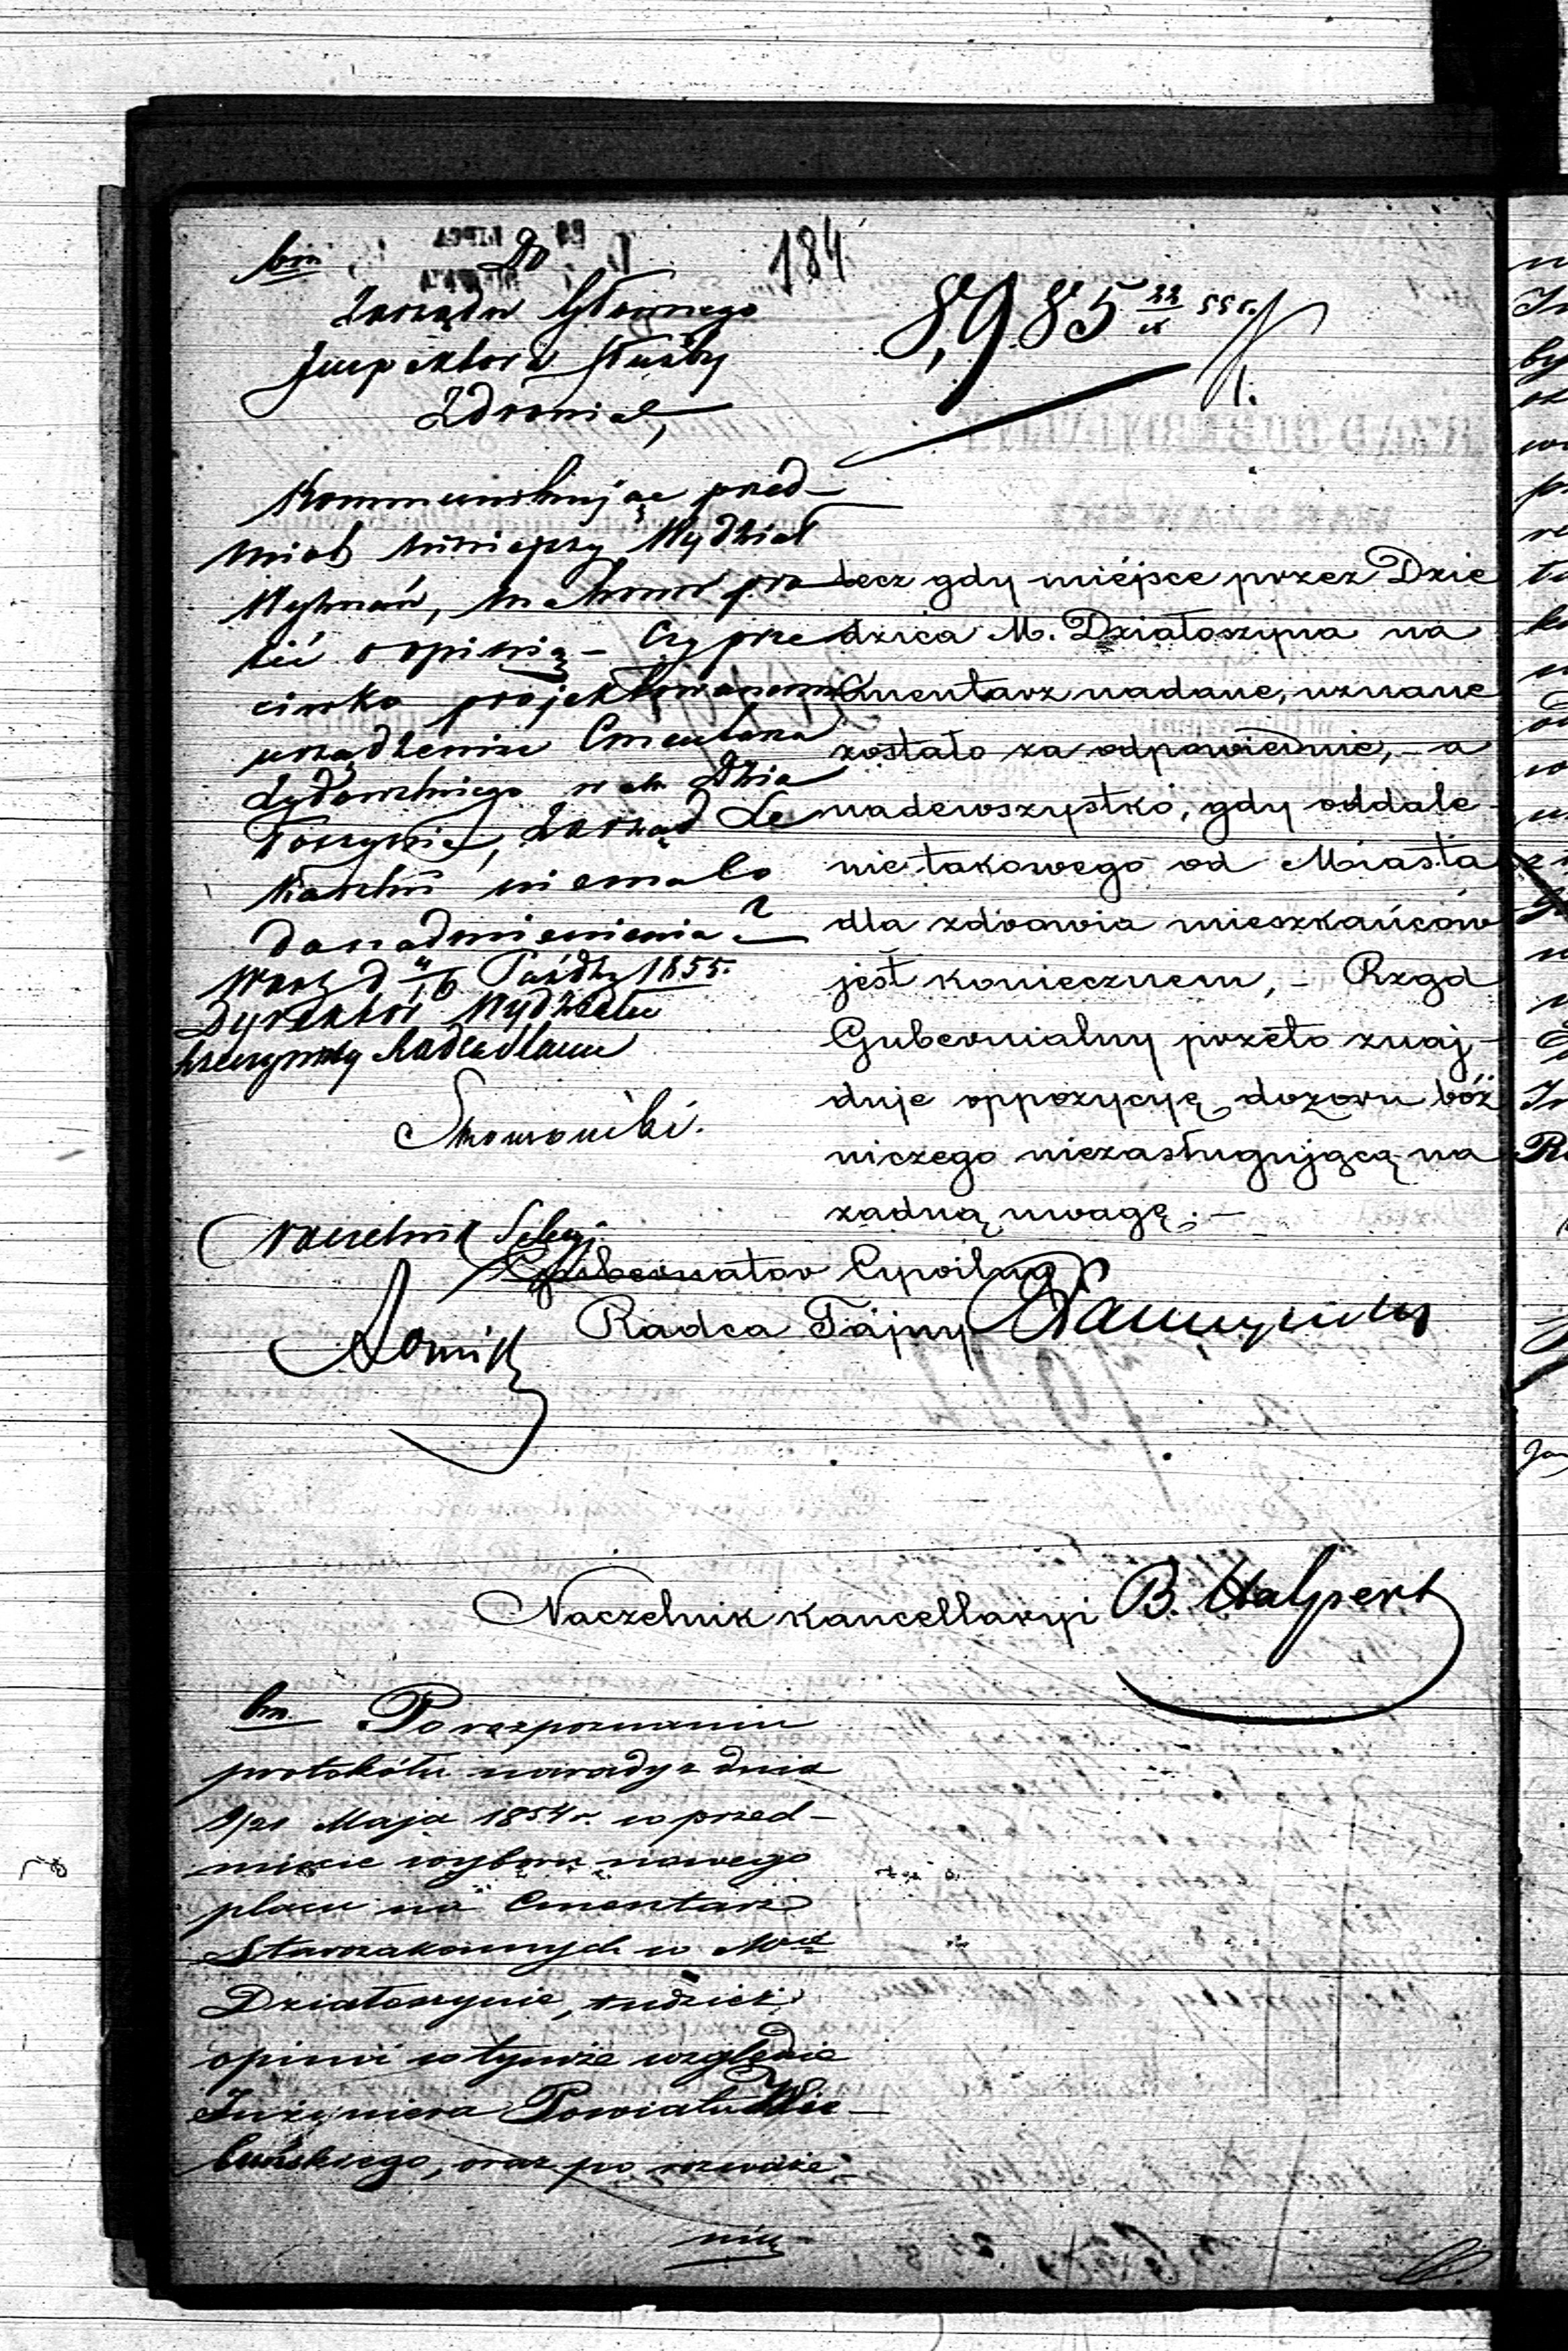 184
bm
Do
Zarządu Głównego
Inspektora Służby
Zdrowia,
8,985 22/IX 55 r.
Kommunikując przed-
miot niniejszy Wydział
Wyznań, ma honor pro
sić o opinią - Czy prze
ciwko projektowanemu
urządzeniu Cmentarza
Żydowskiego w m. Dzia
łoszynie, Zarząd Le
karski nie ma co
do nadmienienia?
Warsz d 4/16 Paźdz 1855.
Dyrektor Wydziału
Rzeczywisty Radca Stanu
Naczelnik Sekcyi
lecz gdy miéjsce przez Dzie
dzica M. Działoszyna na
Cmentarz nadane, uznane
zostało za odpowiednie, - a
nadewszystko, gdy oddale-
nie takowego od Miasta
dla zdrowia mieszkańców
jest koniecznem, - Rząd
Gubernialny przeto znaj-
duje oppozycyę dozoru bóż
niczego niezasługującą na
żadną uwagę. -
Gubernator Cywilny
Radca Tajny
Naczelnik Kancellaryi B. Halpert
bm. Po rozpoznaniu
protokółu narady z dnia
9/21 Maja 1854 r. w przed-
miocie wyboru nowego
placu na Cmentarz
Starozakonnych w Mcie
Działoszynie, tudzież
opinii w tymże względzie
Inżyniera Powiatu Wie-
luńskiego, oraz po rozważe-
niu